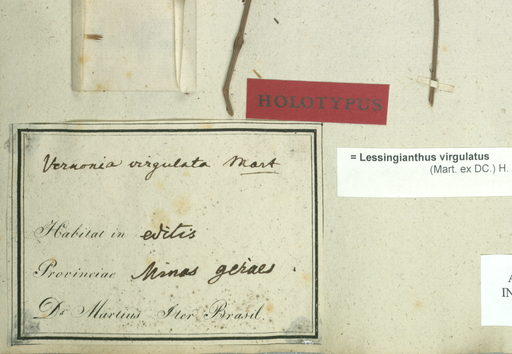 HOLOTYPUS
= Lessingianthus virgulatus
(Mart. ex DC.) H.
Vernonia virgulata Mart
Habitat in editis
Provinciae Minas geraes.
Dr. Martius Iter Brasil.
A
IN